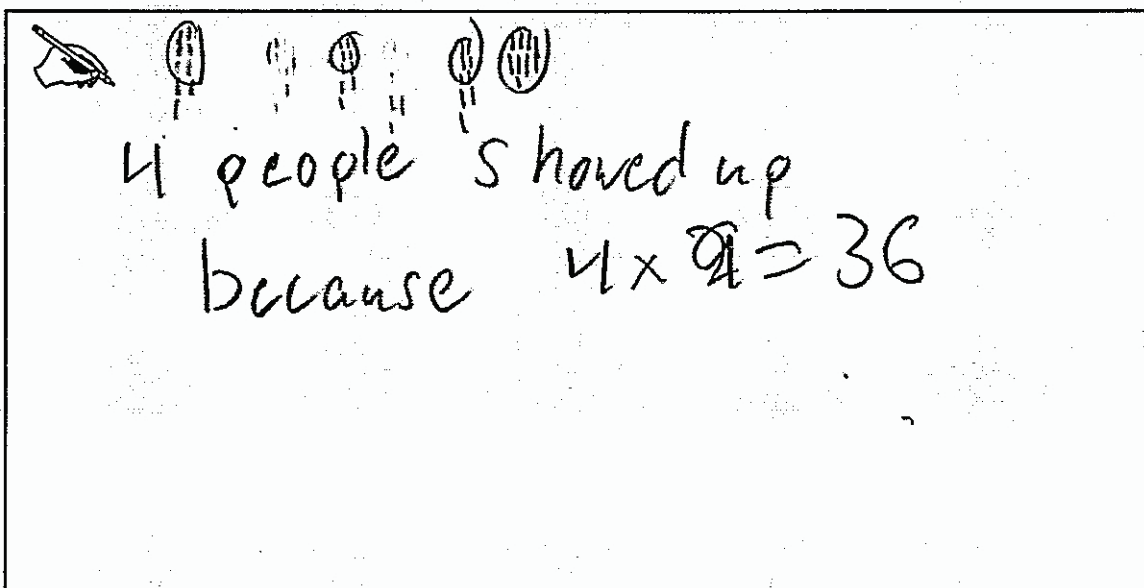 4 people showed up
because 4 x 9 = 36